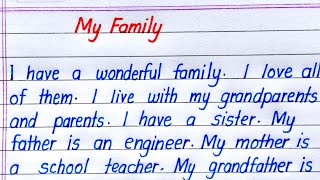 My Family
I have a wonderful family. I love all
of them. I live with my grandparents
and parents. I have a sister. My
father is an engineer. My mother is
a school teacher. My grandfather is